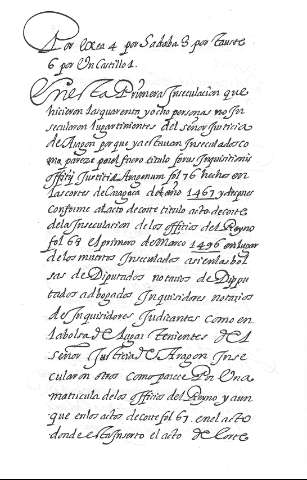 Por Exea 4 por Sadaba 3 por Tauste
6 por Un Castillo 1.
En esta Primera Inseculacion que
hicieron las quarenta y ocho personas no In
secularon lugartinientes del señor Justicia
de Aragon porque ya estauan Inseculados co
mo parece por el fuero titulo forus Inquisitionis
offitij Justitiæ Aragonum fol 76 hechos en
las cortes de Çaragoça del año 1467 y despues
conforme al acto de corte titulo acto de corte
de la Inseculacion de los officios del Reyno
fol 68 el primero de Março 1496 en lugar
de los muertos Inseculados asi en las bol
sas de Diputados notarios de Dipu
tados adbogados Inquisidores notarios
de Inquisidores Judicantes como en
la bolsa de Lugar Tenientes del
señor Justicia de Aragon Inse
cularon otros como parece Por Una
matricula de los officios del Reyno y aun
que en los actos de corte fol 67. en el acto
donde esta Inserto el acto de Corte